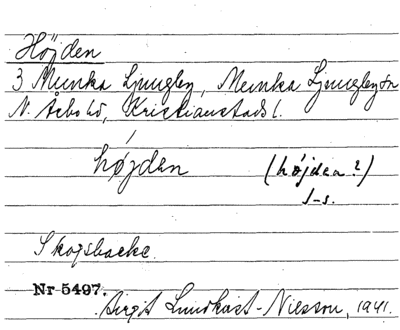 Höjden
3 Munka Ljungby, Munka Ljungby sn
N. Åsbo hd, Kristianstads l.
hø̀jden (højdea?)
s-s.
Skogsbacke.
Nr 5497.
Birgit Lundkvist-Nilsson, 1941.